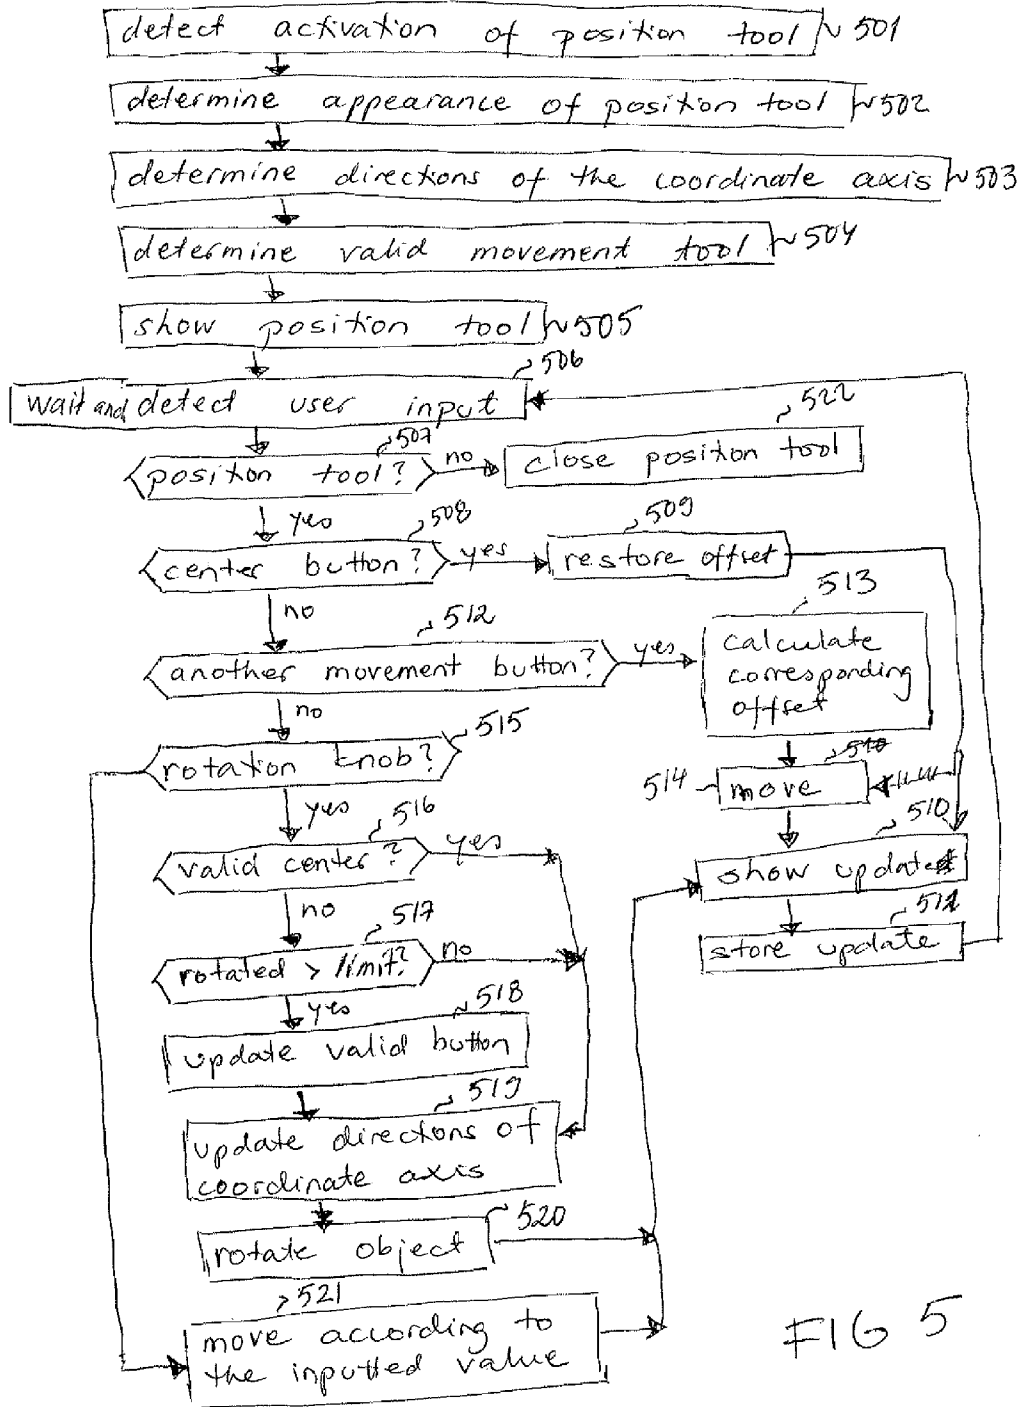 detect activation of position tool 501
determine appearance of position tool 502
determine directions of the coordinate axis 503
determine valid movement tool 504
show position tool 505
506
wait and detect user input
522
507
position tool? no close position tool
yes 508 509
center button? yes restore offset
no 513
512
another movement button? yes calculate
corresponding
offset
no
515
rotation knob?
514 move
yes 516 510
valid center? yes show update
no 517
store update
rotated > limit? no
yes 518
update valid button
519
update directions of
coordinate axis
520
rotate object
521
move according to
the inputted value
FIG 5